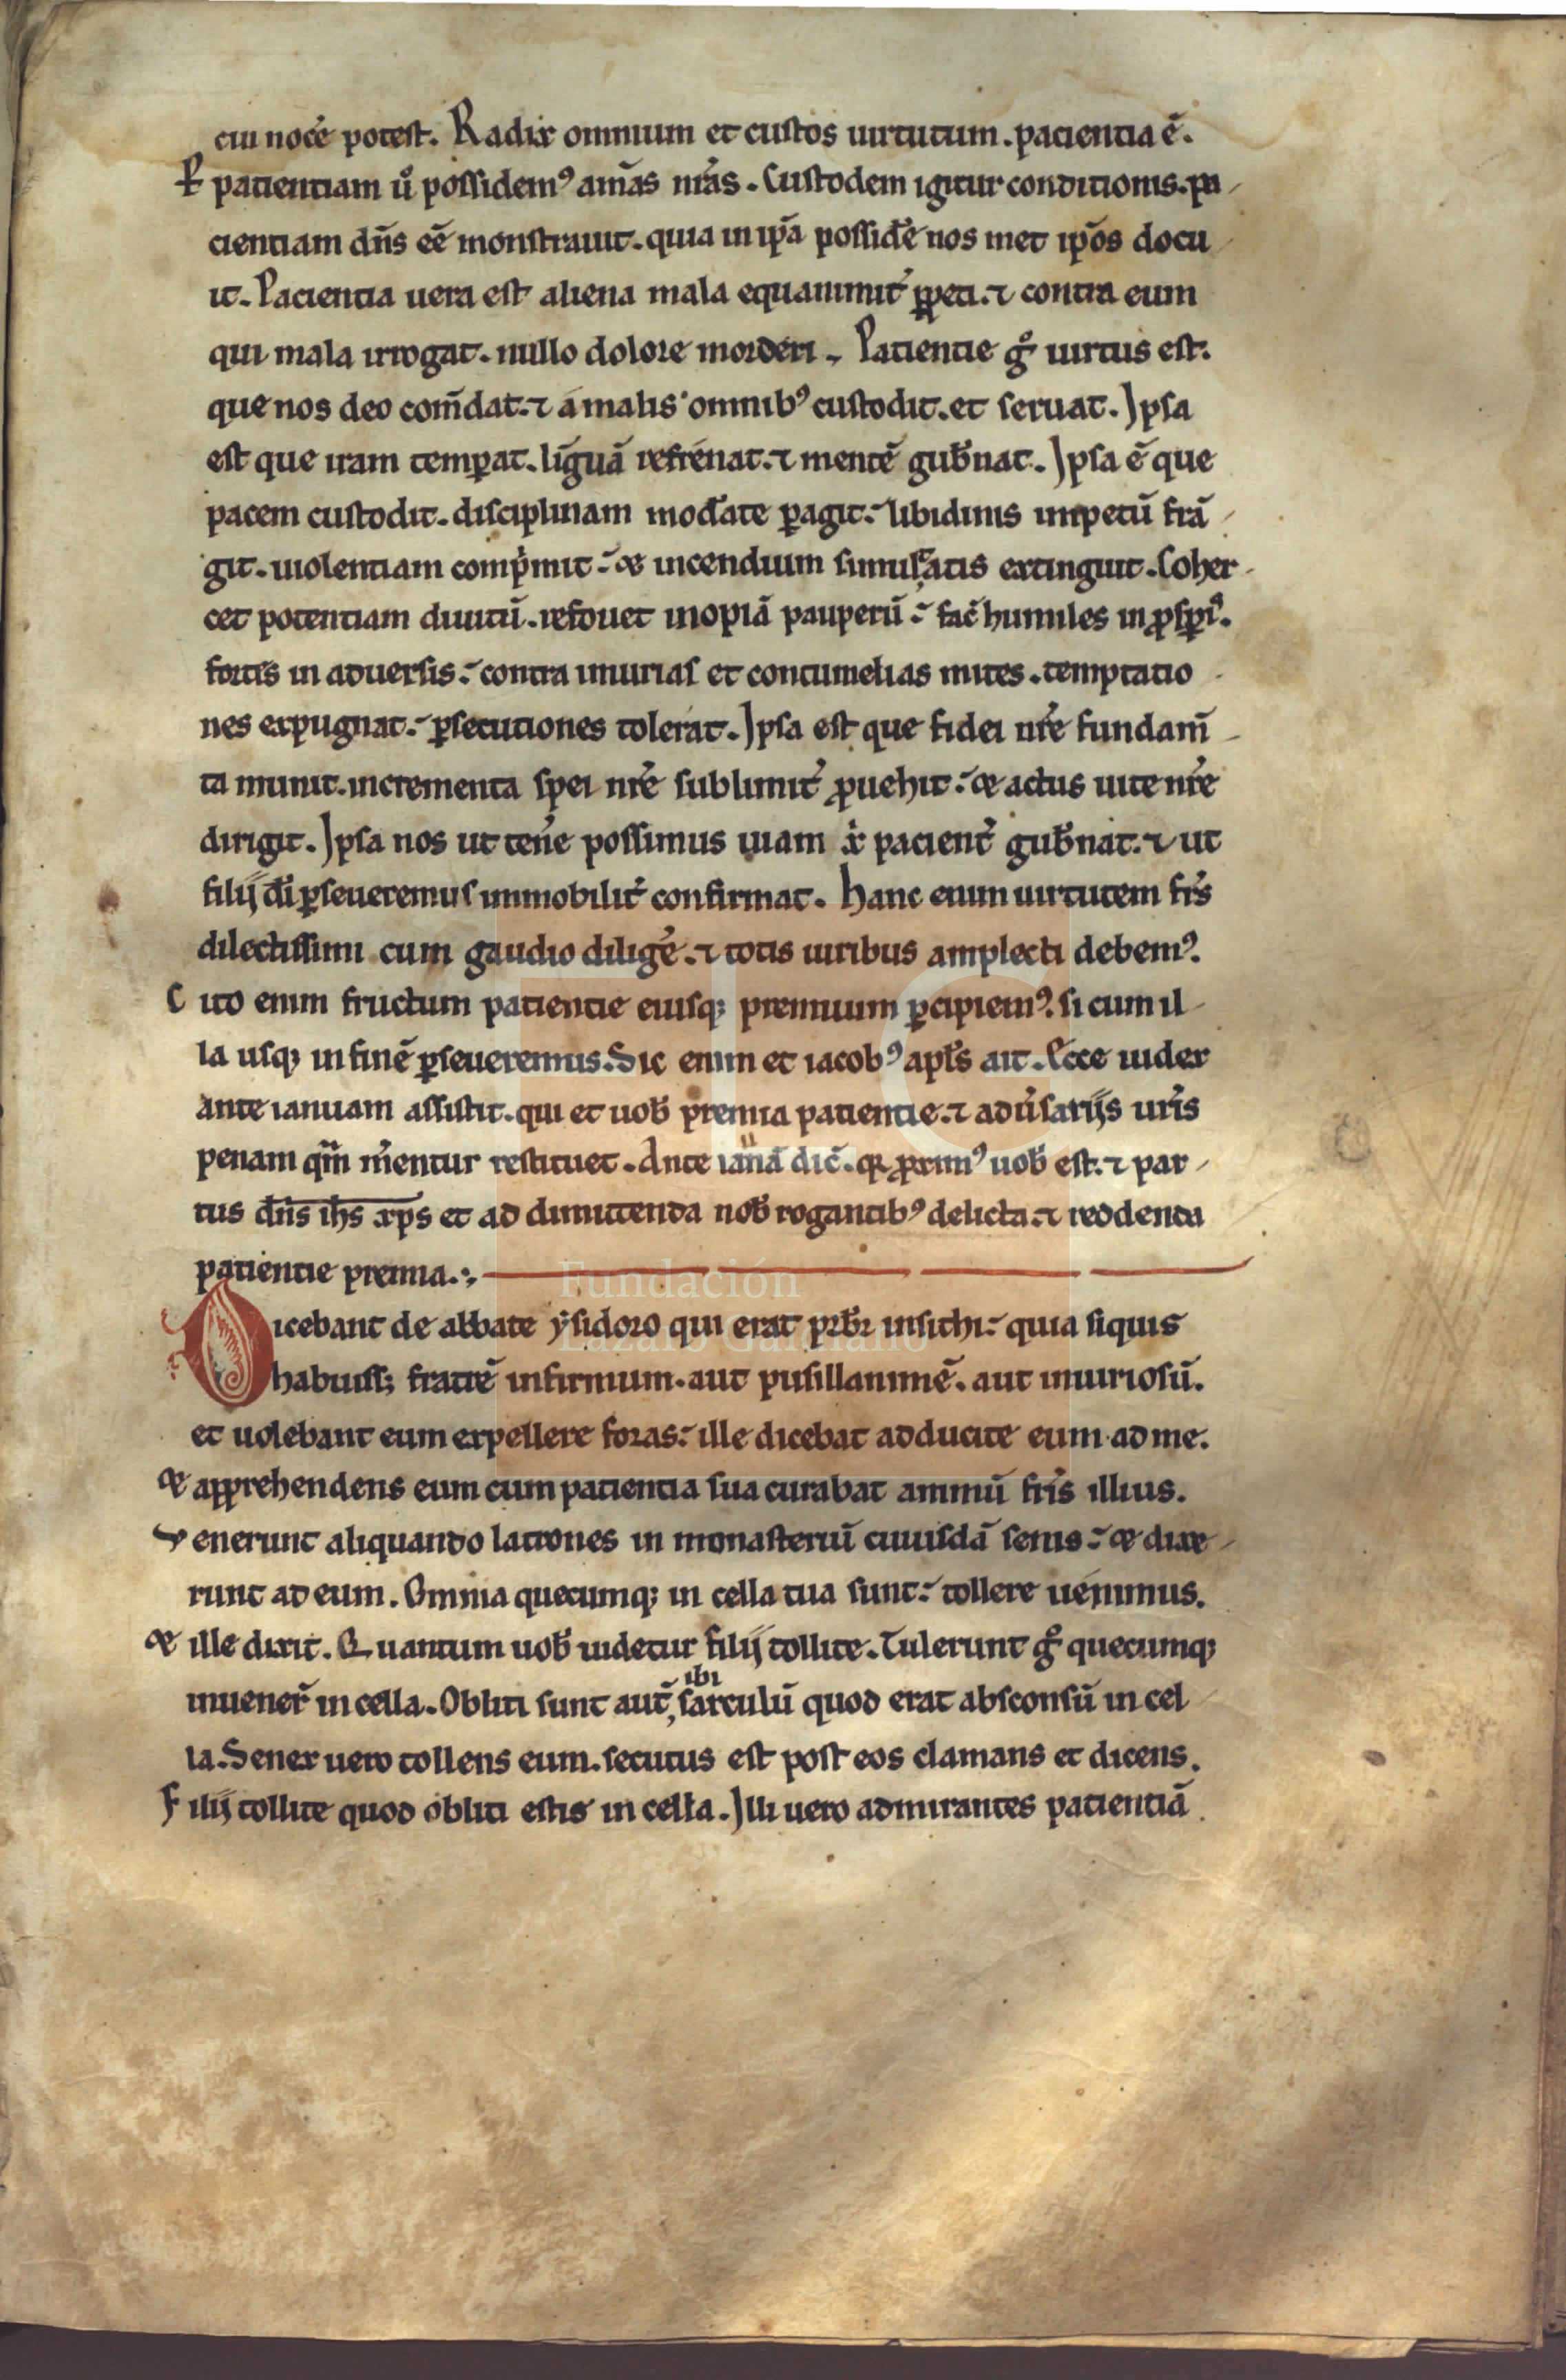 cui noc̄e potest. Radix omnium et custos uirtutum. pacientia ē.
Ꝑ patientiam u᷎o possidem⁹ am̄as nr̄as. Custodem igitur conditionis. pa
cientiam dn̄s eē monstrauit. quia in ip̄a possid̄e nos met ip̄os docu
it. Pacientia uera est aliena mala equanimit̄ ꝑpeti. ⁊ contra eum
qui mala irrogat. nullo dolore morderi. Patientie gͦ uirtus est.
que nos deo com̄dat. ⁊ a malis omnib⁹ custodit. et seruat. Ipsa
est que iram temꝑat. līguā refrenat. ⁊ mentē gub̄nat. Ipsa ē que
pacem custodit. disciplinam mod̄ate ꝑagit. libidinis impetū frā
git. uiolentiam comp̄mit. & incendium simultatis extinguit. Coher
cet potentiam diuitū. refouet inopiā pauperū. fac̄ humiles in ꝓsꝑi⁹.
fortes in aduersis. contra iniurias et contumelias mites. temptatio
nes expugnat. ꝑsecutiones tolerat. Ipsa est que fidei nr̄e fundam̄
ta munit. incrementa spei nr̄e sublimit̄ ꝓuehit. & actus uite nr̄e
dirigit. Ipsa nos ut ten̄e possimus uiam x̄ pacient̄ gub̄nat. ⁊ ut
filij dī ꝑseueremus immobilit̄ confirmat. Hanc enim uirtutem fr̄s
dilectissimi cum gaudio diliḡe. ⁊ totis uiribus amplecti debem⁹.
Cito enim fructum patientie eiusqꝫ premium ꝑcipiem⁹. si cum il
la usqꝫ in finē ꝑseueremus. Sic enim et iacob⁹ apl̄s ait. Ecce iudex
ante ianuam assistit. qui et uob̄ premia patientie. ⁊ adu̅sarijs ur̄is
penam qm̄ m̄entur restituet. Ante ianā dic̄. qꝛ ꝓxim⁹ uob̄ est. ⁊ par
tus dn̄s ih̄s xp̄s et ad dimittenda nob̄ rogantib⁹ delicta. ⁊ reddenda
patientie premia.
Dicebant de abbate ysidoro qui erat prb̄r insithi. quia siquis
habuissꝫ fratrē infirmum. aut pusillanimē. aut iniuriosū.
et uolebant eum expellere foras. ille dicebat adducite eum ad me.
& apprehendens eum cum patientia sua curabat animū fr̄is illius.
Venerunt aliquando latrones in monasteriū cuiusdā senis. & dixe
runt ad eum. Omnia quecumqꝫ in cella tua sunt. tollere uenimus.
& ille dixit. Quantum uob̄ uidetur filij tollite. Tulerunt gͦ quecumqꝫ
ibi
inuener̄ in cella. Obliti sunt aut̄ sarculū quod erat absconsū in cel
la. Senex uero tollens eum. secutus est post eos clamans et dicens.
Filij tollite quod obliti estis in cella. Illi uero admirantes patientiā
Fundación
Lázaro Galdiano